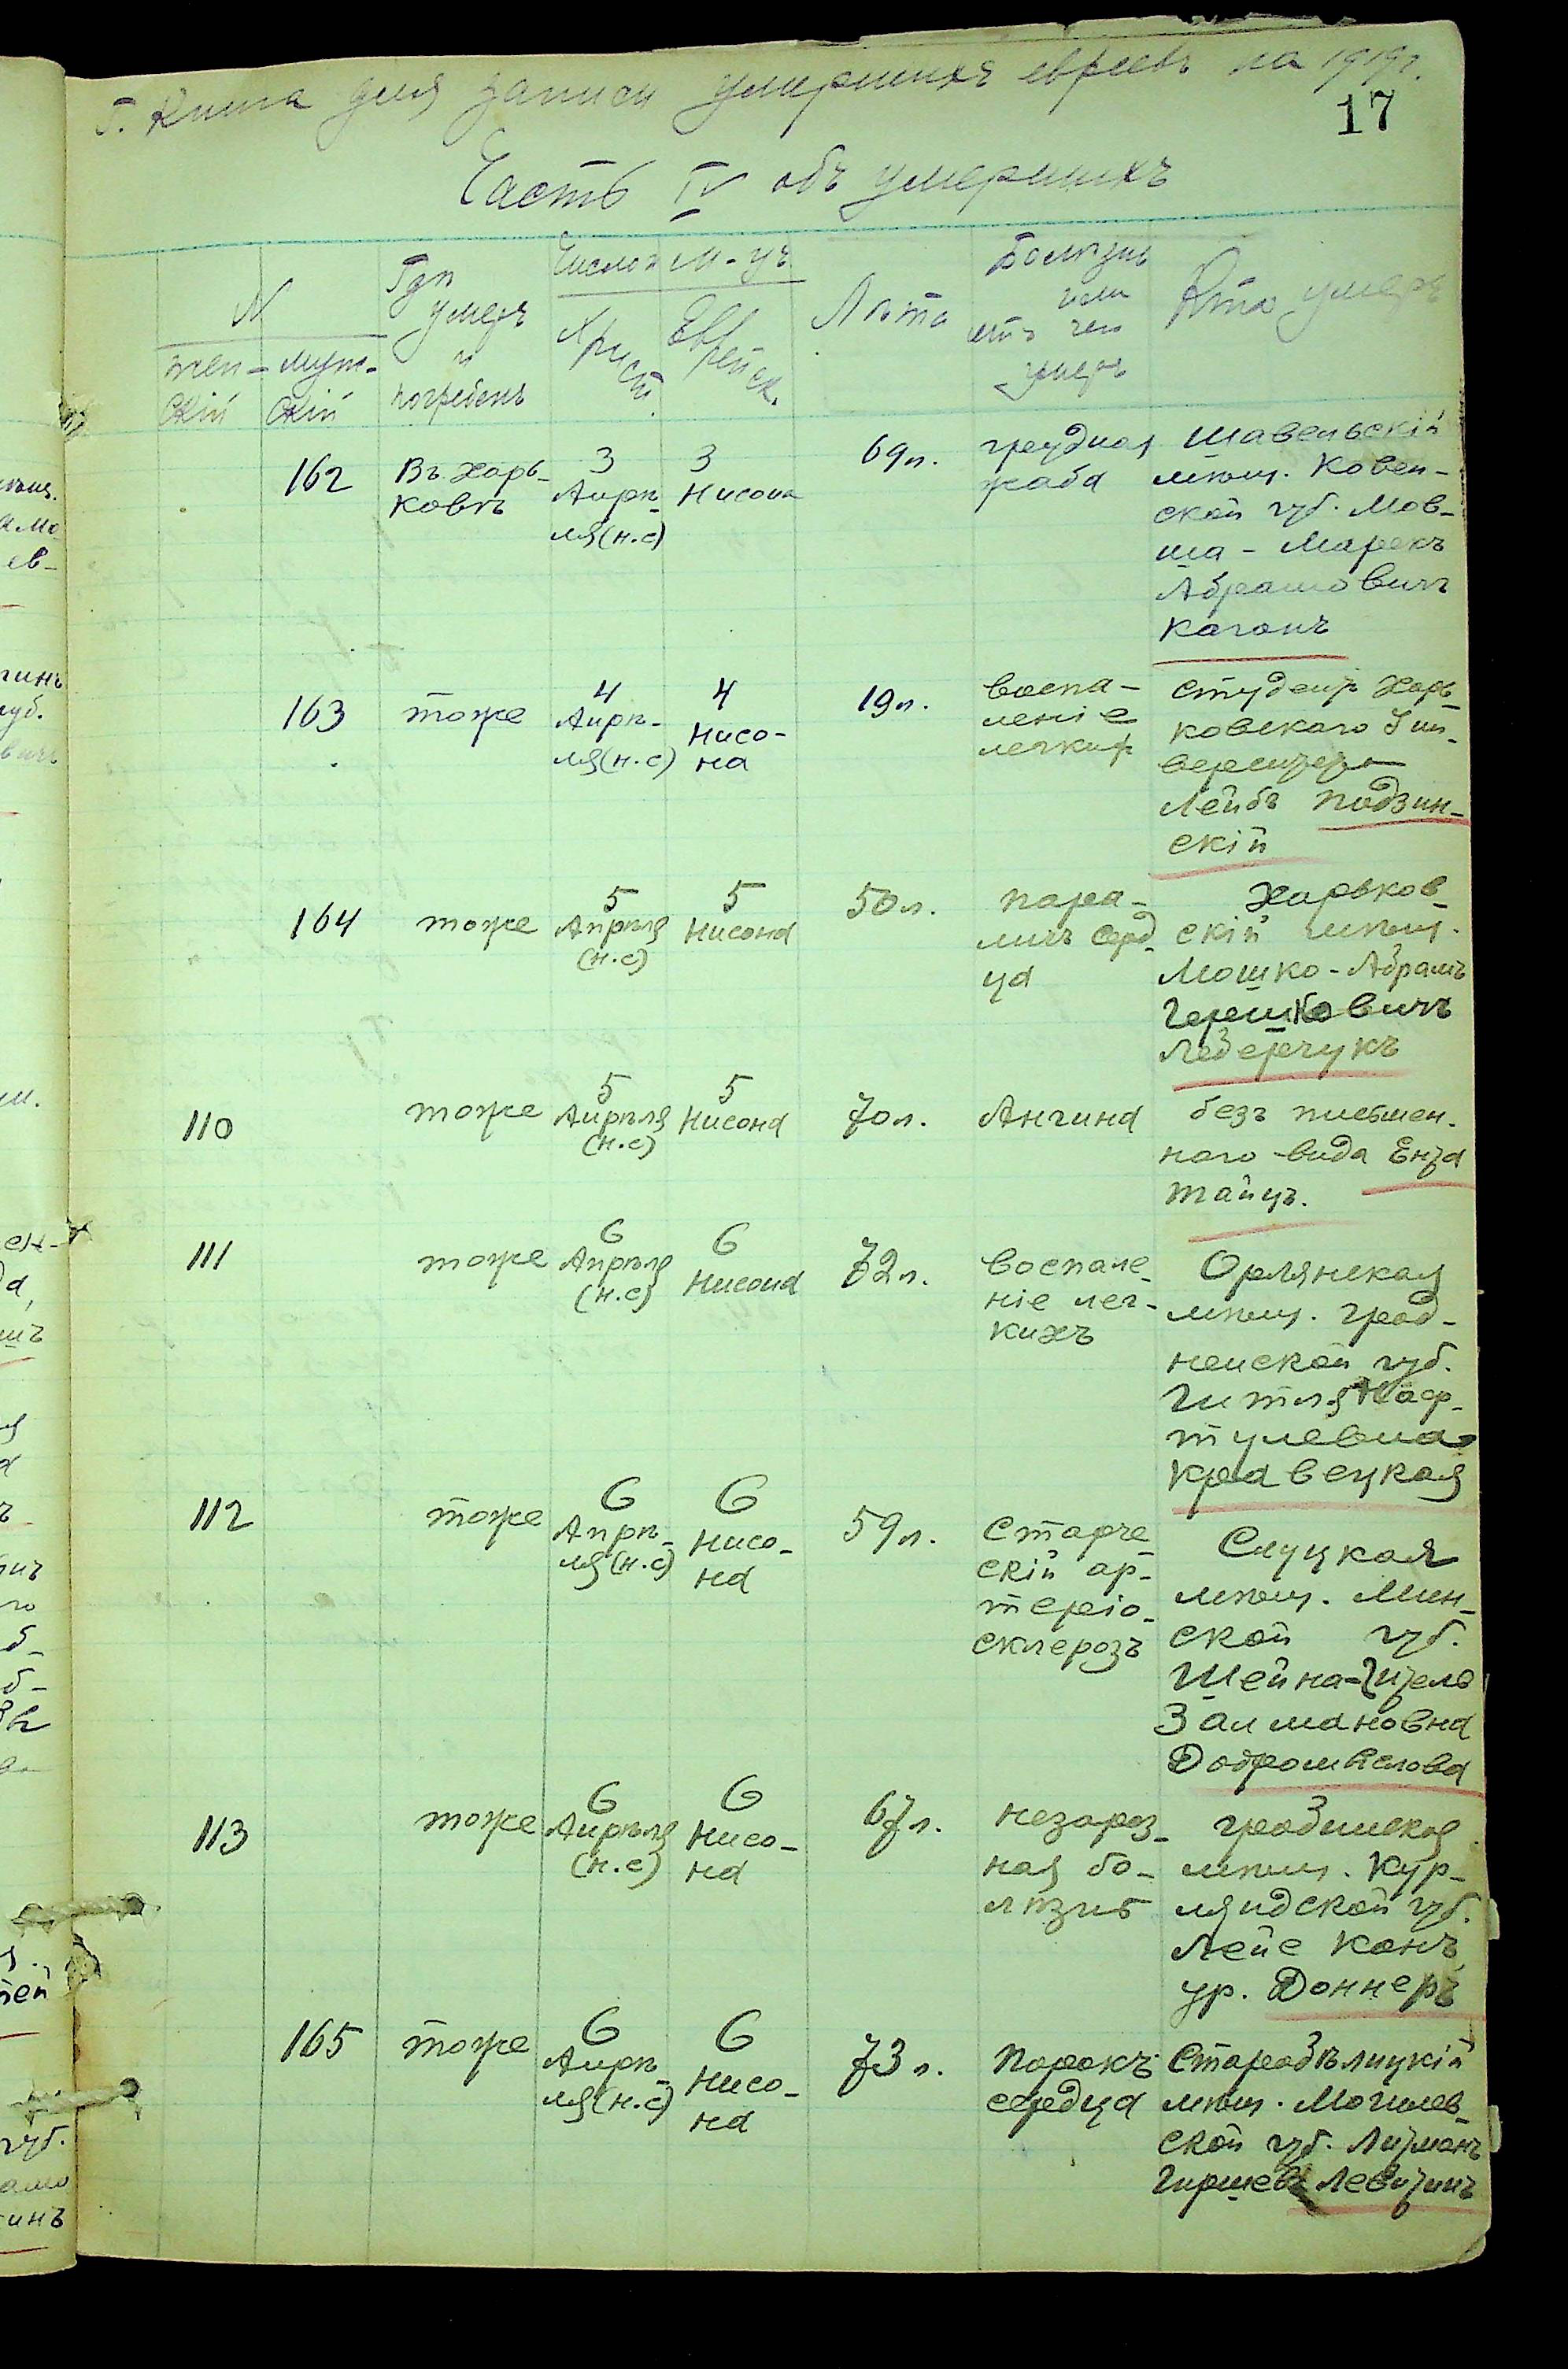 Книга для записи умершихъ евреевъ на 1919г.
17
Часть IV объ умершихъ
N
жен-
скій
муж-
скій
Гдѣ
умеръ
и
погребенъ
Число и м-цъ
Христ.
Еврейск.
Лѣта
Болѣзнь
или
отъ чего
умеръ
Кто умеръ
162
Въ Харь-
ковѣ
3
Апрѣ-
ля (н.с)
3
Нисона
69л.
грудная
жаба
Шавельскій
мѣщ. Ковен-
ской губ. Мов-
ша - Марекъ
Абрамовичъ
Каганъ
163
тоже
4
Апрѣ-
ля (н.с)
4
Нисо-
на
19л.
воспа-
леніе
легких
студент Харь-
ковскаго Уни-
верситета
Лейбъ Подзин-
скій
164
тоже
5
Апрѣля
(н.с)
5
Нисона
50л.
пара-
личъ серд-
ца
Харьков-
скій мѣщ.
Мошко-Абрамъ
Гершковичъ
Ледерчукъ
110
тоже
5
Апрѣля
(н.с)
5
Нисона
70л.
Ангина
безъ письмен-
наго вида Ента
Тайцъ.
111
тоже
6
Апрѣля
(н.с)
6
Нисона
72л.
воспале-
ніе лег-
кихъ
Орлянская
мѣщ. Грод-
ненской губ.
Гитля Наф-
тулевна
Кравецкая
112
тоже
6
Апрѣ-
ля (н.с)
6
Нисо-
на
59л.
Старче-
скій ар-
теріо-
склерозъ
Слуцкая
мѣщ. Мин-
ской губ.
Шейна-Цтеля
Залмановна
Добромыслова
113
тоже
6
Апрѣля
(н.с)
6
Нисо-
на
67л.
незараз-
ная бо-
лѣзнь
Гробинская
мѣщ. Кур-
ляндской губ.
Лейе Канъ
ур. Доннеръ
165
тоже
6
Апрѣ-
ля (н.с)
6
Нисо-
на
73л.
Порокъ
сердца
Старобѣлицкій
мѣщ. Могилев-
ской губ. Литманъ
Гиршевъ Левитинъ